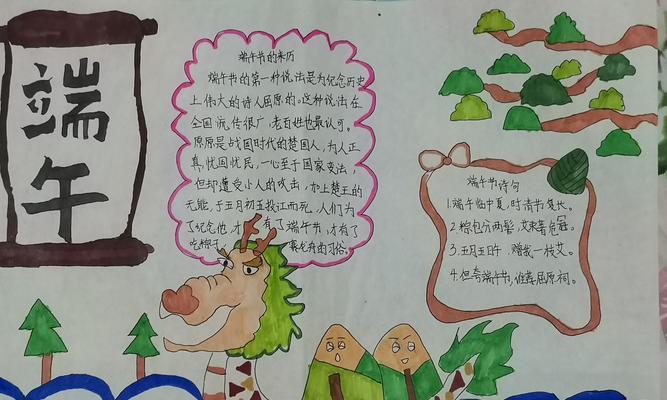 端
午
端午节的来历
端午节的第一种说法是为纪念历史
上伟大的诗人屈原的。这种说法在
全国流传很广，老百姓也最认可。
屈原是战国时代的楚国人，为人正
真，忧国忧民，一心至于国家变法，
但却遭受小人的攻击，加上楚王的
无能，于五月初五投江而死，人们为
了纪念他，才有了端午节，才有了
吃粽子 赛龙舟的习俗。
端午节诗句
1.端午临中夏，时清节复长。
2.粽包分两髻，艾束著危冠。
3.五月五日午，赠我一枝艾。
4.但夸端午节，谁荐屈原祠。